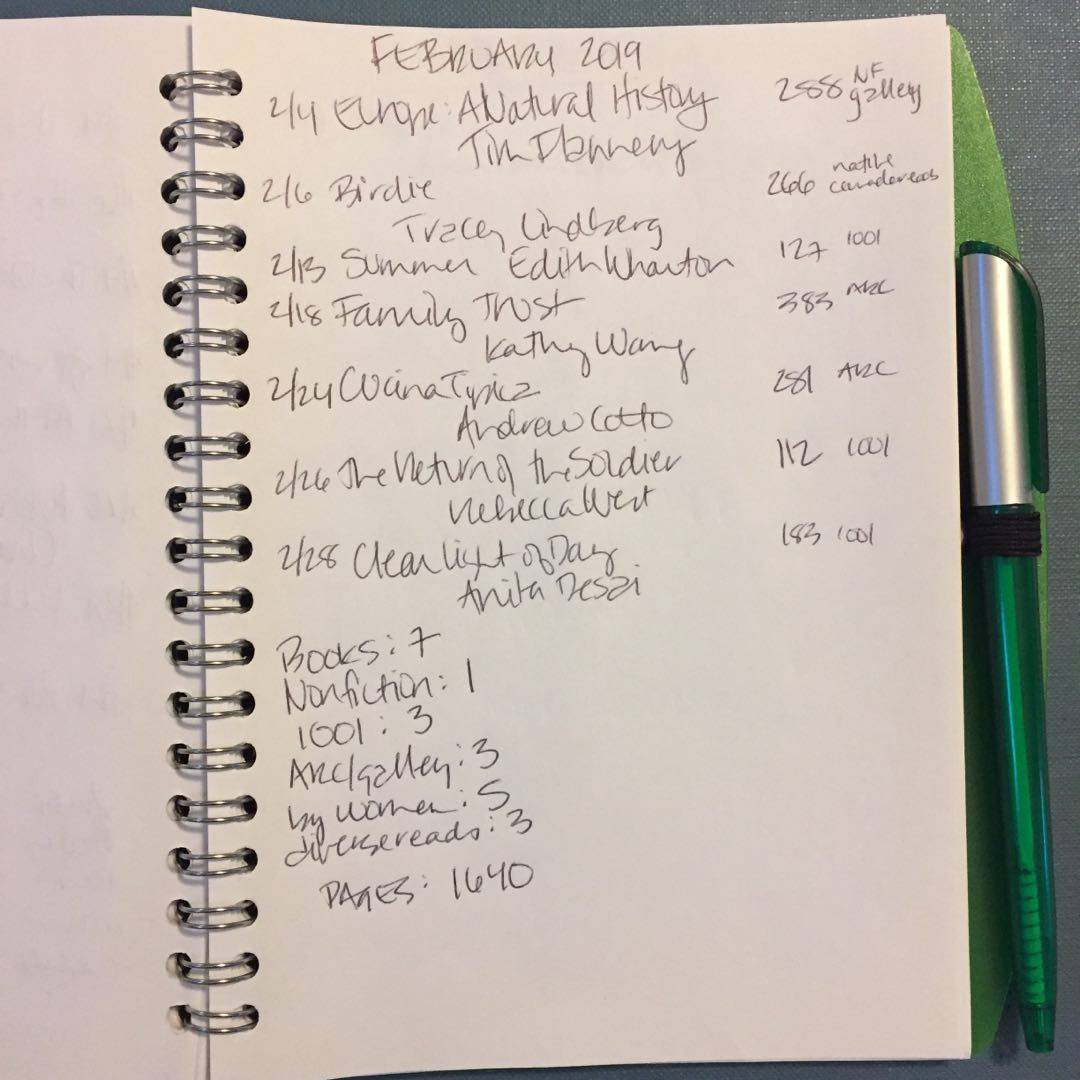 FEBRUARY 2019
2/4 Europe: A Natural History 288 NF galley
Tim Flannery
2/6 Birdie 266 native canadareads
Tracey Lindberg
2/13 Summer Edith Wharton 127 1001
2/18 Family Trust 383 ARC
Kathy Wang
2/24 Cucina Tipica 281 ARC
Andrew Cotto
2/26 The Return of the Soldier 112 1001
Rebecca West
2/28 Clear Light of Day 183 1001
Anita Desai
Books: 7
Nonfiction: 1
1001: 3
ARC/galley: 3
by women: 5
diversereads: 3
PAGES: 1640